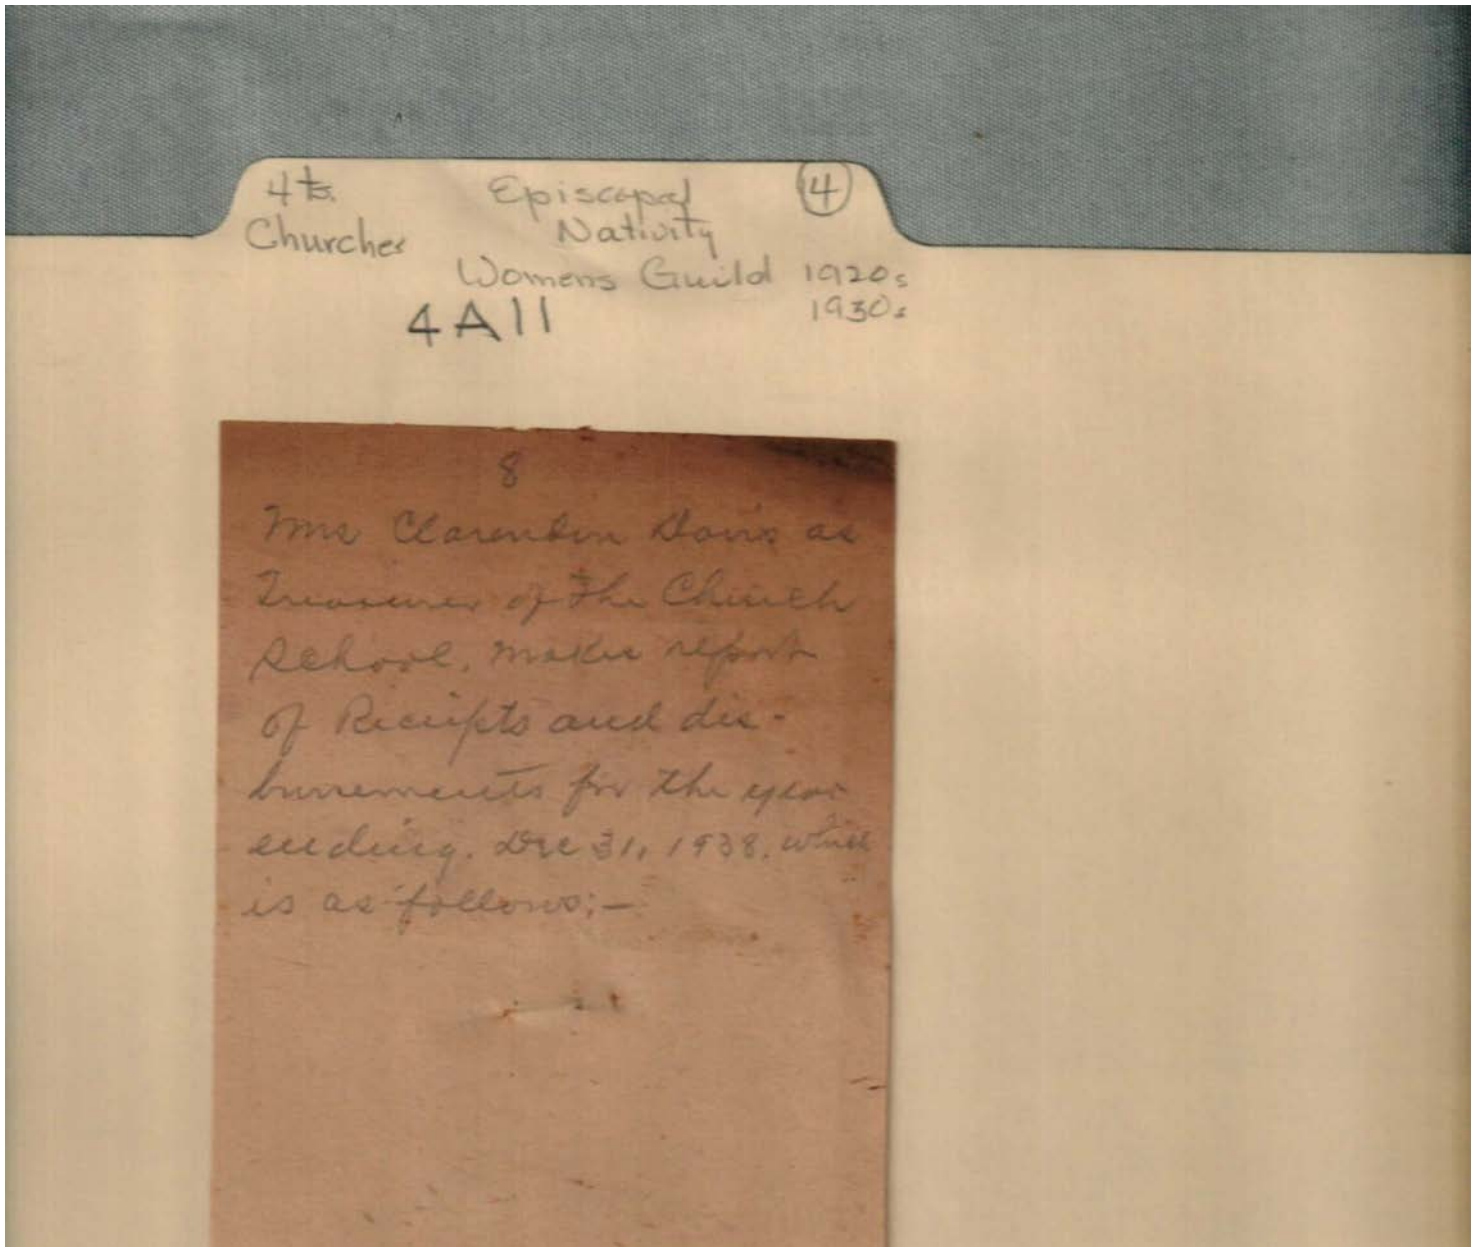 4ts. Episcopal 4
Churches Nativity
Womens Guild 1920s
1930s
4A11
8
Mrs Clarendon Davis as
Treasurer of the Church
School, makes report
of Receipts and dis-
bursements for the year
ending. Dec 31, 1938. which
is as follows;—